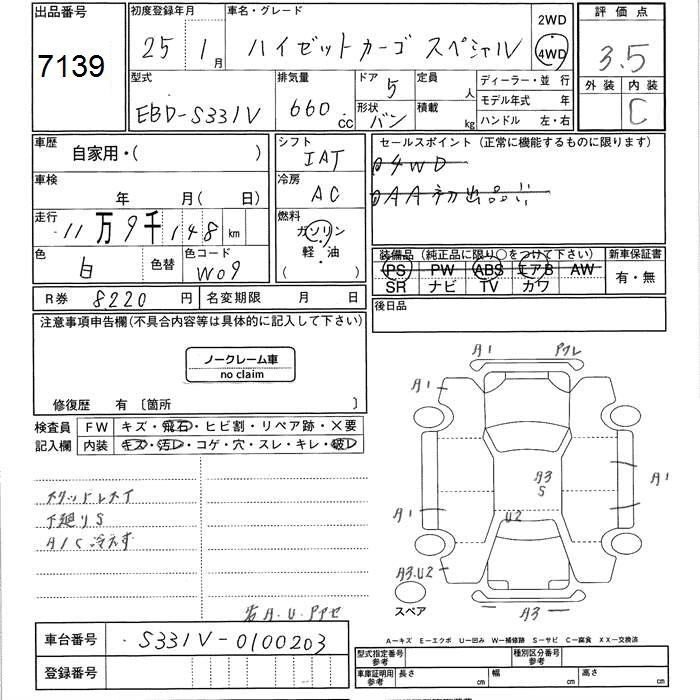 出品番号
7139
初度登録年月
25 1月
車名・グレード
ハイゼットカーゴ スペシャル
2WD
4WD
評価点
3.5
外装 内装
C
型式
EBD-S331V
排気量
660 cc
ドア 5
形状 バン
定員 人
積載 kg
ディーラー・並 行
モデル年式 年
ハンドル 左・右
車歴
自家用・( )
車検
年 月(日)
走行
11万9千148km
色
白
色替
色コード
W09
シフト
IAT
冷房
AC
燃料
ガソリン
・
軽・油
( )
セールスポイント(正常に機能するものに限ります)
4WD
AA初出品
装備品(純正品に限り○をつけて下さい)
PS PW ABS エアB AW
SR ナビ TV カワ
新車保証書
有・無
R券 8220円
名変期限 月 日
後日品
注意事項申告欄(不具合内容等は具体的に記入して下さい)
ノークレーム車
no claim
修復歴 有 〔箇所 〕
検査員
記入欄
FW キズ・飛石・ヒビ割・リペア跡・×要
内装 キズ・汚レ・コゲ・穴・スレ・キレ・破レ
下廻りS
A/C冷えず
A1
A1
A3
S
A1
A1
U2
A3.U2
A3
スペア
車台番号 S331V-0100203
登録番号
A-キズ E-エクボ U-凹み W-補修跡 S-サビ C-腐食 XX-交換済
型式指定番号
参考
種別区分番号
参考
車庫証明用
参考
長さ cm 幅 cm 高さ cm